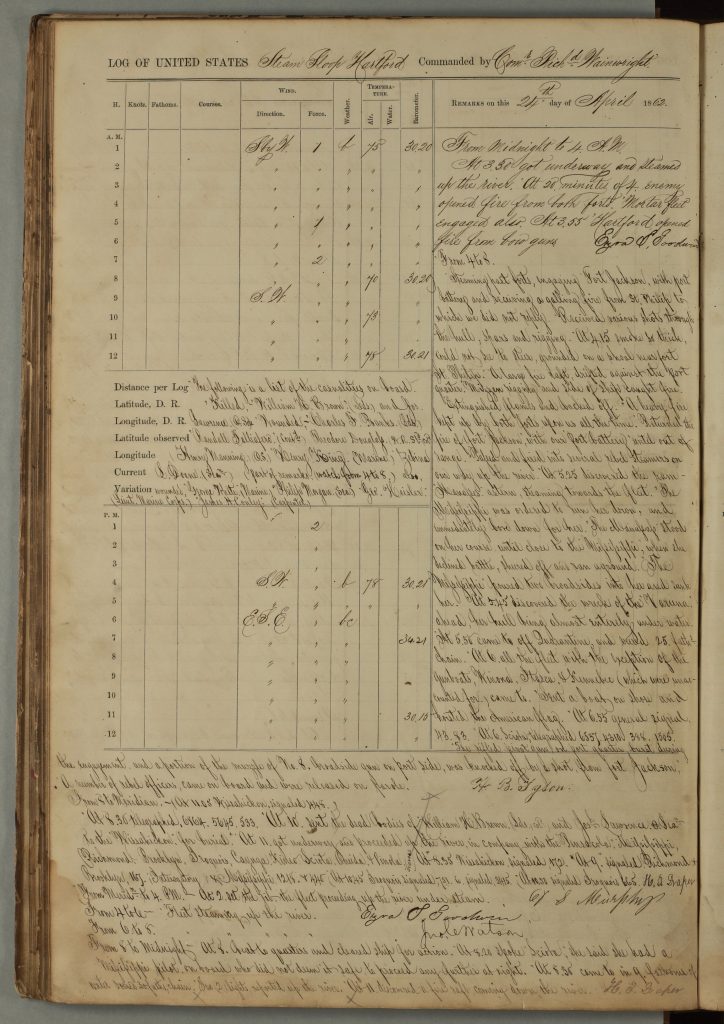 LOG OF UNITED STATES Steam Sloop Hartford Commanded by Com'r Rich'd Wainwright
H. Knots. Fathoms. Courses. WIND. Direction. Force. Weather. TEMPERATURE. Air. Water. Barometer. REMARKS on this 24th day of April 1862.
A. M.
1 S by W. 1 b 75 30.20
2 " " " " "
3 " " " " "
4 " " " " "
5 " 1 " " "
6 " " " " "
7 " 2 " "
8 " " " 70 30.20
9 S. W. " "
10 " " " 73
11 " " "
12 " " " 78 30.21
From Midnight to 4 A.M.
At 3.30 got underway and steamed
up the river. At 20 minutes of 4 enemy
opened fire from both forts. Mortar fleet
engaged also. At 3.55 Hartford opened
fire from bow guns Ezra S. Goodwin
From 4 to 8.
Steaming past forts, engaging Fort Jackson, with port
battery and receiving a galling fire from St. Philip to
which we did not reply. Received various shots through
the hull, spars and rigging. At 4.15 smoke so thick,
could not see to steer, grounded on a shoal near fort
St. Philip. A large fire raft drifted against the Port
quarter, Mizzen rigging and side of Ship caught fire.
Extinguished flames and backed off. A heavy fire
kept up by both forts upon us all the time. Returned the
fire of fort Jackson with our Port battery until out of
range. Passed and fired into several rebel steamers on
our way up the river. At 5.25 discovered the ram
Manassas astern steaming towards the fleet. The
Mississippi was ordered to run her down, and
immediately bore down for her. The Manassas stood
on her course until close to the Mississippi, when she
declined battle, sheered off and ran aground. The
Mississippi poured two broadsides into her and sunk
her. At 5.45 discovered the wreck of the "Varuna"
ahead, her hull being almost entirely under water.
At 5.50 came to off Quarantine, and veered 25 faths.
chain. At 6 all the fleet with the exception of the
gunboats Winona, Itasca, & Kennebec (which were unac-
counted for) came to. Sent a boat on shore and
hoisted the American flag. At 6.35 general signal,
Distance per Log The following is a list of the casualties on board.
Latitude, D. R. "Killed," William H. Brown, and Jos.
Longitude, D. R. Lawrence Wounded. Charles
Latitude observed Randall Theodore Douglass
Longitude Henry Manning Henry King (Marine)
Current (part of remarks from 4 to 8,) also,
Variation wounded, George White, Marine, Philip Morgan, Geo. Heisler
(Lieut. Marine Corps), James H. Conley (Carpenter)
P. M.
1 2
2 "
3 "
4 S.W. " b 78 30.21
5 " " " " "
6 E.S.E. " bc
7 " " " 34.21
8 " " "
9 " " "
10 " " "
11 " " " 30.15
12 " " "
43.83. At 6 Scioto, telegraphed 655, 4310. 348. 1505.
The rifled pivot gun on port quarter burst during
the engagement, and a portion of the muzzle of No. 8. broadside gun on port side, was knocked off by a shot from fort Jackson.
A number of rebel officers came on board and were released on parole. H. B. Tyson.
From 8 to Meridian. - (At 11.05 Wissahickon signaled 1445.)
At 8.30 telegraphed, 6864. 5645. 533. At 10. sent the dead bodies of William H. Brown, and Jos. Lawrence Sea'
to the Wissahickon for burial. At 11. got underway and proceeded up the river in company with the Pensacola, Mississippi,
Richmond, Brooklyn, Iroquois, Cayuga, Scioto, At 8.35 Wissahickon signaled 872. At 9. signaled Richmond
Brooklyn At 10.45 Iroquois signaled signaled Iroquois 665. H. S. Draper
From Merid. to 4 P.M. - At 2.20 the fleet proceeding up the river under steam. C. S. Murphy
From 4 to 6 - Fleet Steaming up the river. Ezra S. Goodwin
From 6 to 8. Jno. C. Watson
From 8 to Midnight - At 8. beat to quarters and cleared ship for action. At 8.20 spoke Scioto, she said she had a
Mississippi pilot on board who did not deem it safe to proceed any further at night. At 8.35 came to in 9 fathoms of
water Two lights reported up the river. At 11 discovered a fire raft coming down the river. H. S. Draper